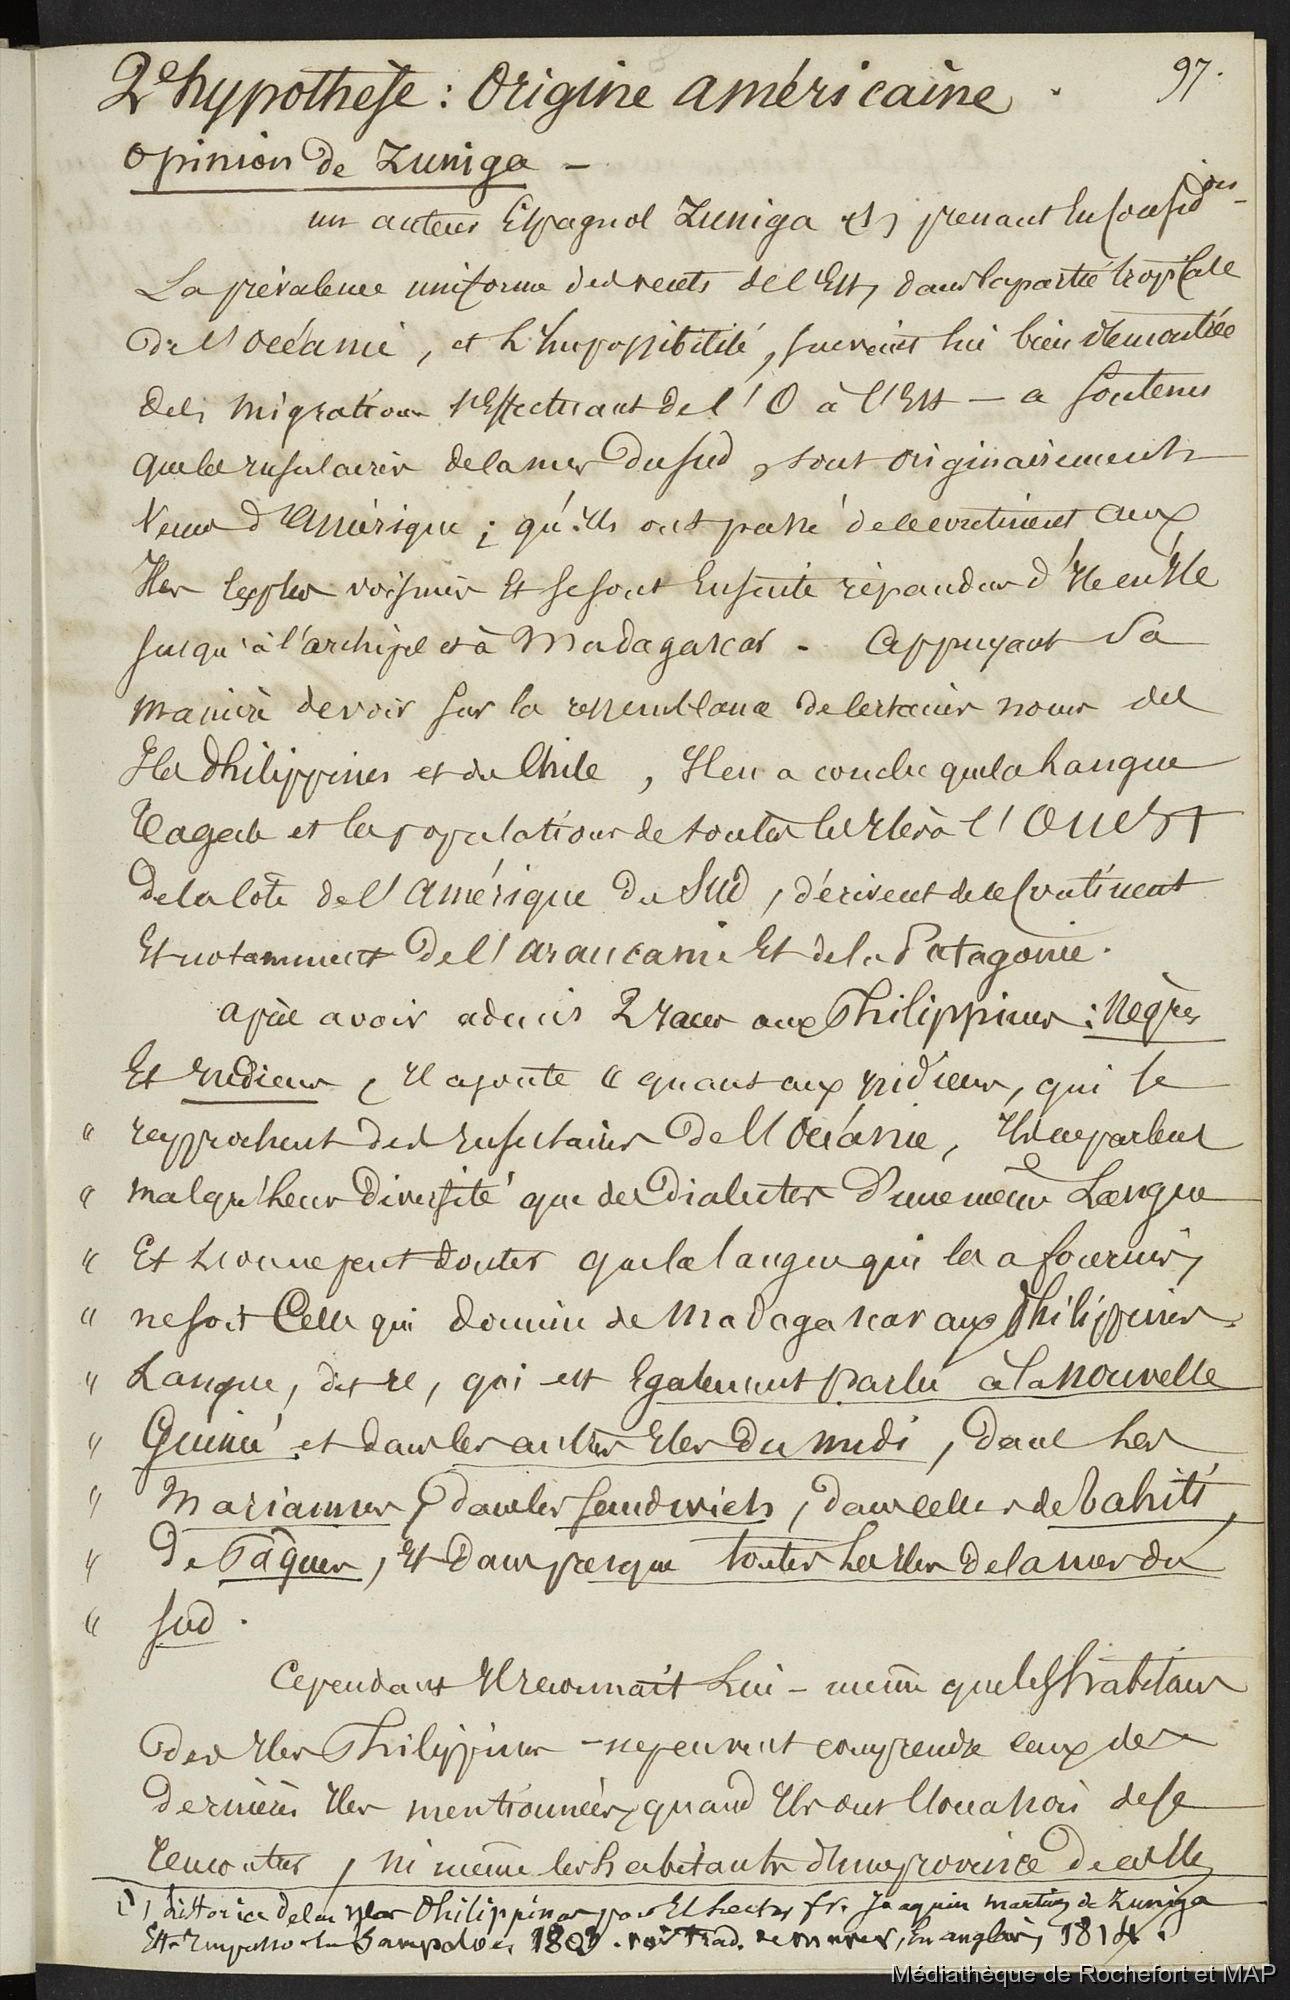 97.
2e hypothèse : Origine américaine.
Opinion de Zuniga —
un auteur Espagnol Zuniga (1) prenant En Considon
La prévalence uniforme des vents de l'Est, dans la partie tropicale
de l'Océanie, et L'Impossibilité, suivant lui bien démontrée
des migrations s'Effectuant de l'O à l'Est — a soutenu
que les Insulaires de la mer du Sud, sont originairement
Venus d'Amérique ; qu'ils ont passé de ce continent aux
Iles les plus voisines Et se sont Ensuite répandus d'Ile en Ile
jusqu'à l'archipel et à Madagascar. Appuyant Sa
manière de voir sur la ressemblance de certains noms des
Iles Philippines et du Chile, Il en a conclu que la Langue
Tagale et les populations de toutes les Iles à l'Ouest
de la Côte de l'Amérique du Sud, dérivent de ce Continent
Et notamment de l'Araucanie Et de la Patagonie.
après avoir admis 2 races aux Philippines : Nègres
Et Indiens, Il ajoute « quant aux Indiens, qui se
" rapprochent des Insulaires de l'Océanie, Ils ne parlent
" malgré leur diversité que des Dialectes d'une même Langue
" Et L'on ne peut douter que la langue qui les a fournis,
" ne soit Celle qui domine de Madagascar aux Philippines.
" Langue, dit-Il, qui est Egalement parlée à la Nouvelle
" Guinée et dans les autres Iles du midi, dans les
" Mariannes, dans les Sandwich, dans celles de Tahiti,
" de Pâques, Et Dans presque toutes les Iles de la mer du
" Sud.
Cependant Il reconnaît Lui-même que les habitans
des Iles Philippines — ne peuvent comprendre ceux des
dernières Iles mentionnées, quand Ils ont l'occasion de se
rencontrer, ni même les habitants d'une province de cette Ile
(1) historia de las Islas Philippinas por El fr. Joaquin Martinez de Zuniga
Sampaloc 1803. voir trad. En anglais, 1814.
Médiathèque de Rochefort et MAP